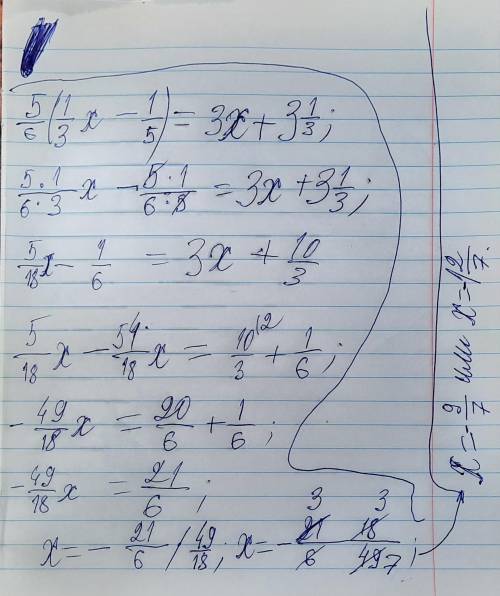 5/6(1/3 x - 1/5) = 3x + 3 1/3;
5·1/6·3 x - 5·1/6·5 = 3x + 3 1/3;
5/18 x - 1/6 = 3x + 10/3
5/18 x - 54/18 x = 10/3 (2 + 1/6;
-49/18 x = 20/6 + 1/6;
-49/18 x = 21/6;
x = - 21/6 / 49/18; x = - 21 3 18 3 / 6 49 7;
x = -9/7 или x = -1 2/7.